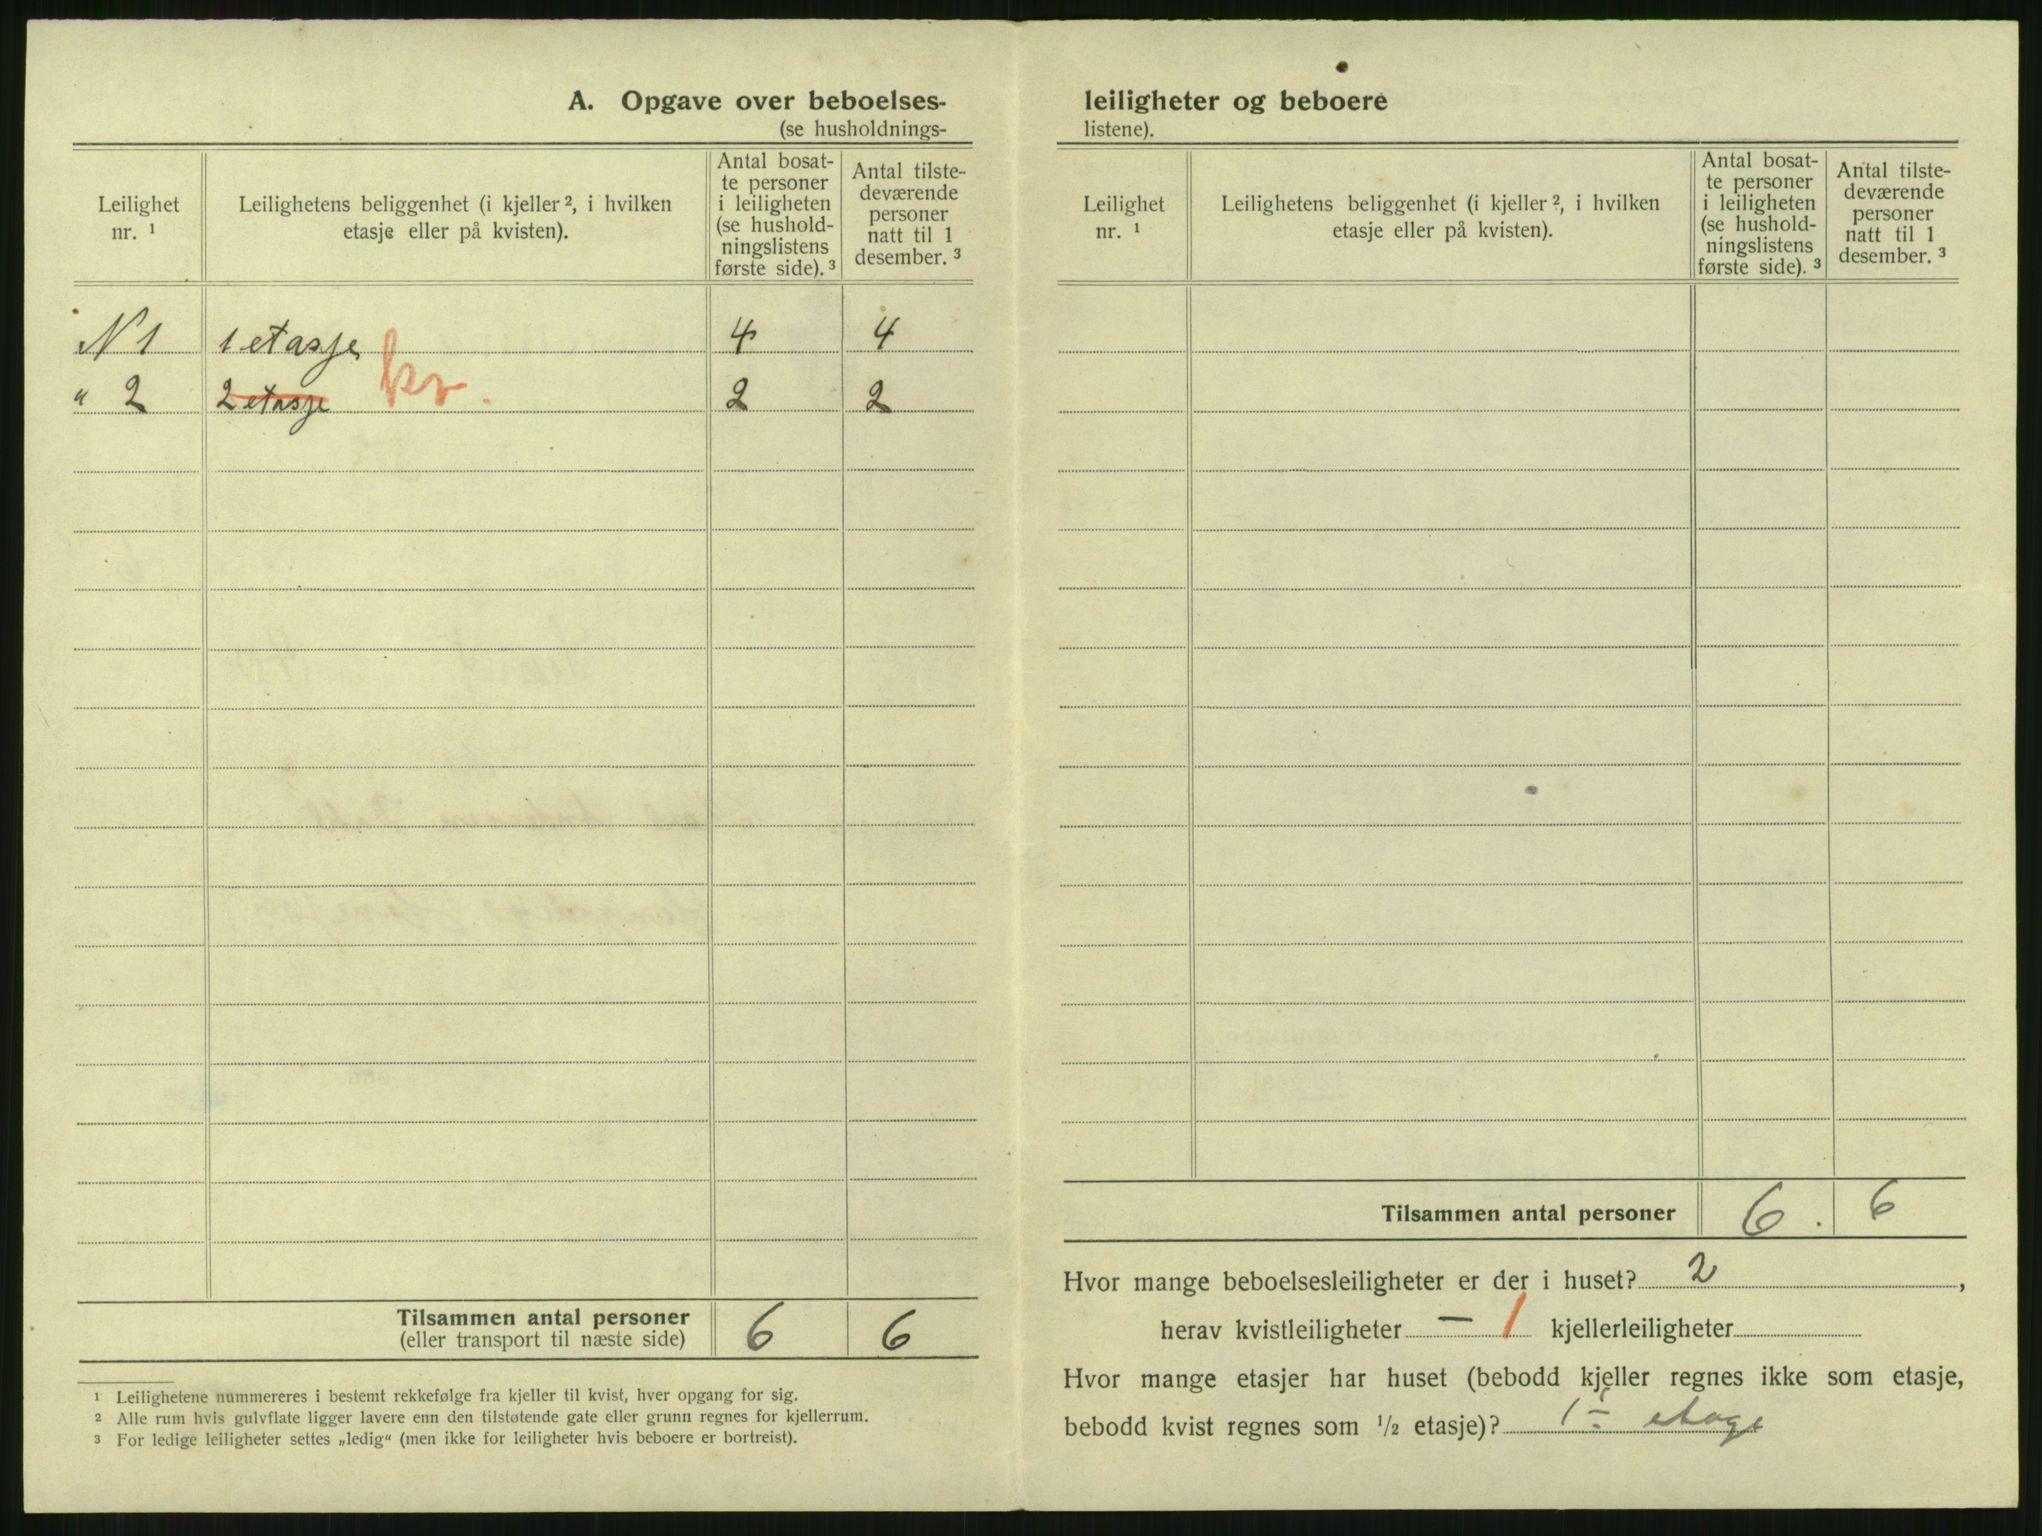 A. Opgave over beboelses-
(se husholdnings-
Leilighet nr. ¹
Leilighetens beliggenhet (i kjeller ², i hvilken etasje eller på kvisten).
Antal bosat-
te personer
i leiligheten
(se hushold-
ningslistens
første side). ³
Antal tilste-
deværende
personer
natt til 1
desember. ³
N 1 1 etasje 4 4
" 2 2 etasje kv. 2 2
Tilsammen antal personer 6 6
(eller transport til næste side)
¹ Leilighetene nummereres i bestemt rekkefølge fra kjeller til kvist, hver opgang for sig.
² Alle rum hvis gulvflate ligger lavere enn den tilstøtende gate eller grunn regnes for kjellerrum.
³ For ledige leiligheter settes „ledig“ (men ikke for leiligheter hvis beboere er bortreist).
leiligheter og beboere
listene).
Leilighet nr. ¹
Leilighetens beliggenhet (i kjeller ², i hvilken etasje eller på kvisten).
Antal bosat-
te personer
i leiligheten
(se hushold-
ningslistens
første side). ³
Antal tilste-
deværende
personer
natt til 1
desember. ³
Tilsammen antal personer 6. 6
Hvor mange beboelsesleiligheter er der i huset? 2,
herav kvistleiligheter – 1 kjellerleiligheter
Hvor mange etasjer har huset (bebodd kjeller regnes ikke som etasje,
bebodd kvist regnes som ½ etasje)? 1 etage